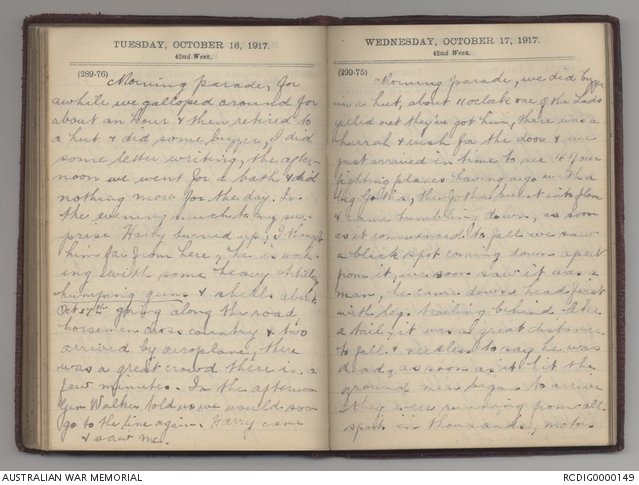 TUESDAY, OCTOBER 16, 1917.
42nd Week.
(289-76)
Morning parade, for
awhile we galloped around for
about an hour & then retired to
a hut & did some buzzer, I did
some letter writing, the after-
noon we went for a bath & did
nothing more for the day. In
the evening much to my sur-
prise Harry turned up, I thought
him far from here, he is work-
ing with some heavy artillery
humping guns & shells about
Oct 17th going along the road
horsemen cross country & two
arrived by aeroplane, there
was a great crowd there in a
few minutes. In the afternoon
Gen Walker told us we would soon
go to the line again. Harry came
& saw me.
WEDNESDAY, OCTOBER 17, 1917.
42nd Week.
(290-75)
Morning parade, we did buzzer
in a hut, about 11 oclock one of the lads
yelled out they've got him, there was a
hurrah & rush for the door & we
just arrived in time to see 4 of our
fighting planes having a go with a
big Gotha, the Gotha burst into flame
& came tumbling down, as soon
as it commenced to fall we saw
a black spot coming down apart
from it, we soon saw it was a
man, he came down head first
with legs trailing behind like
a tail, it was a great distance
to fall & needless to say he was
dead, as soon as it hit the
ground men began to arrive
they were running from all
spots in thousands, motors
AUSTRALIAN WAR MEMORIAL
RCDIG0000149